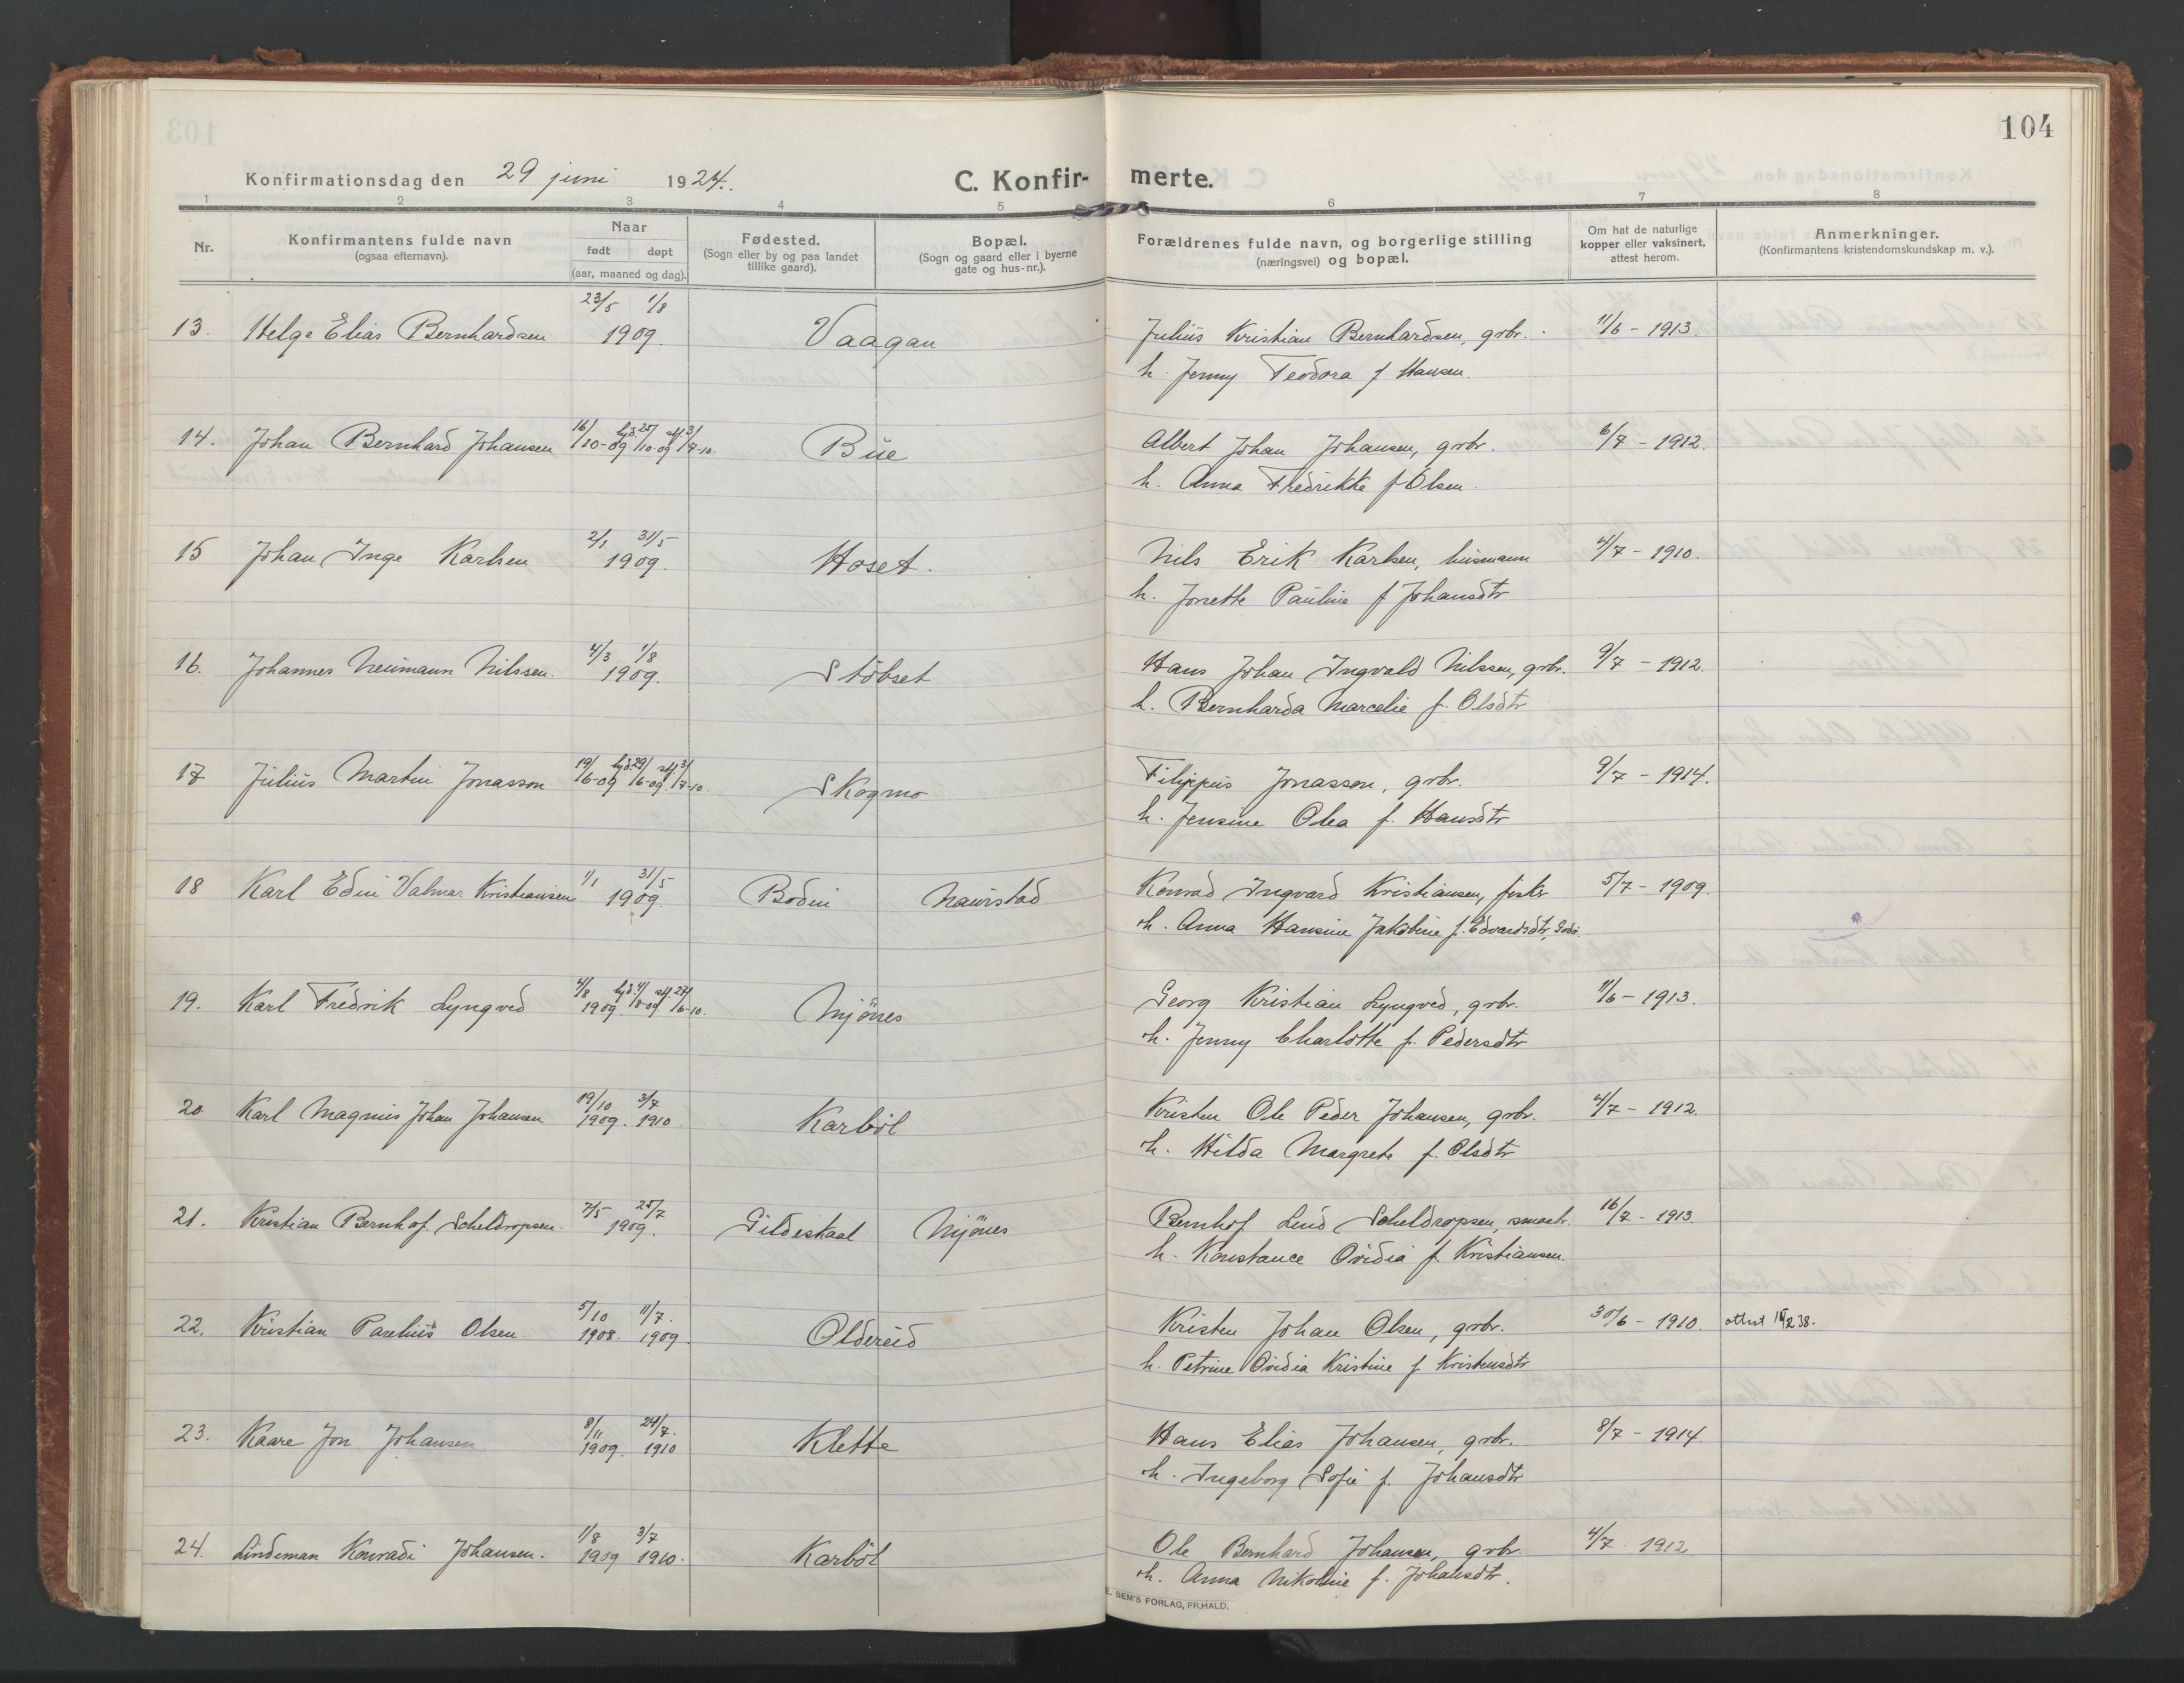 104
Konfirmationsdag den 29 juni 1924.
C. Konfir- merte.
1 2 3 4 5 6 7 8
Nr.
Konfirmantens fulde navn
(ogsaa efternavn).
Naar
født døpt
(aar, maaned og dag).
Fødested.
(Sogn eller by og paa landet
tillike gaard).
Bopæl.
(Sogn og gaard eller i byerne
gate og hus-nr.).
Forældrenes fulde navn, og borgerlige stilling
(næringsvei) og bopæl.
Om hat de naturlige
kopper eller vaksinert,
attest herom.
Anmerkninger.
(Konfirmantens kristendomskundskap m. v.).
23/5 1/8
13. Helge Elias Bernhardsen 1909. Vaagan Julius Kristian Bernhardsen, grbr. 11/6 - 1913.
h. Jenny Teodora f Hansen.
14. Johan Bernhard Johansen 16/10-09 hjd. 25/10-09 stf. 3/7-10. Bue Albert Johan Johansen, grbr. 6/7 - 1912.
h. Anna Fredrikke f Olsen.
2/1 31/5
15 Johan Inge Karlsen 1909. Hoset. Nils Erik Karlsen, husmann 4/7 - 1910.
h. Jonette Pauline f Johansdtr
4/3 1/8
16. Johannes Neumann Nilssen. 1909. Støbset Hans Johan Ingvald Nilssen, grbr. 9/7 - 1912.
h. Bernharda Marcelie f. Olsdtr
17 Julius Martin Jonasson 19/6-09 hjd. 29/6-09 stf. 3/7-10. Skogmo Filippus Jonasson, grbr. 9/7 - 1914.
h. Jensine Olea f. Hansdtr
1/1 31/5
18 Karl Edin Valmar Kristiansen 1909. Bodin Naurstad Konrad Ingvard Kristiansen, fisker 5/7 - 1909.
h. Anna Hansine Jakobine f. Edvardsdtr, Godø.
19. Karl Fredrik Lyngved 4/8 1909. hjd. 4/8-09 stf. 27/6-10. Mjønes Georg Kristian Lyngved, grbr. 11/6 - 1913.
h. Jenny Charlotte f. Pedersdtr
19/10 3/7
20 Karl Magnus Johan Johansen 1909. 1910. Karbøl Kristen Ole Peder Johansen, grbr. 4/7 - 1912.
h. Hilda Margrete f. Olsdtr
7/5 25/7
21. Kristian Bernhof. Scheldropsen. 1909. Gildeskaal Mjønes Bernhof Lind Scheldropsen, smaabr. 16/7 - 1913.
h. Konstance Ovidia f. Kristiansen.
5/10 11/7.
22. Kristian Paselius Olsen. 1908. 1909. Oldereid Kristen Johan Olsen, grbr. 30/6 - 1910. attest 238.
h. Petrine Ovidia Kristine f Kristensdtr
8/11 24/7.
23. Kaare Jon Johansen 1909. 1910 Klette Hans Elias Johansen, grbr. 8/7 - 1914.
h. Ingeborg Sofie f. Johansdtr
1/8 3/7
24. Lindeman Konradi Johansen. 1909 1910. Karbøl Ole Bernhard Johansen, grbr. 4/7 1912
h. Anna Nikoline f. Johansdtr.
E. SEM'S FORLAG, FR.HALD.